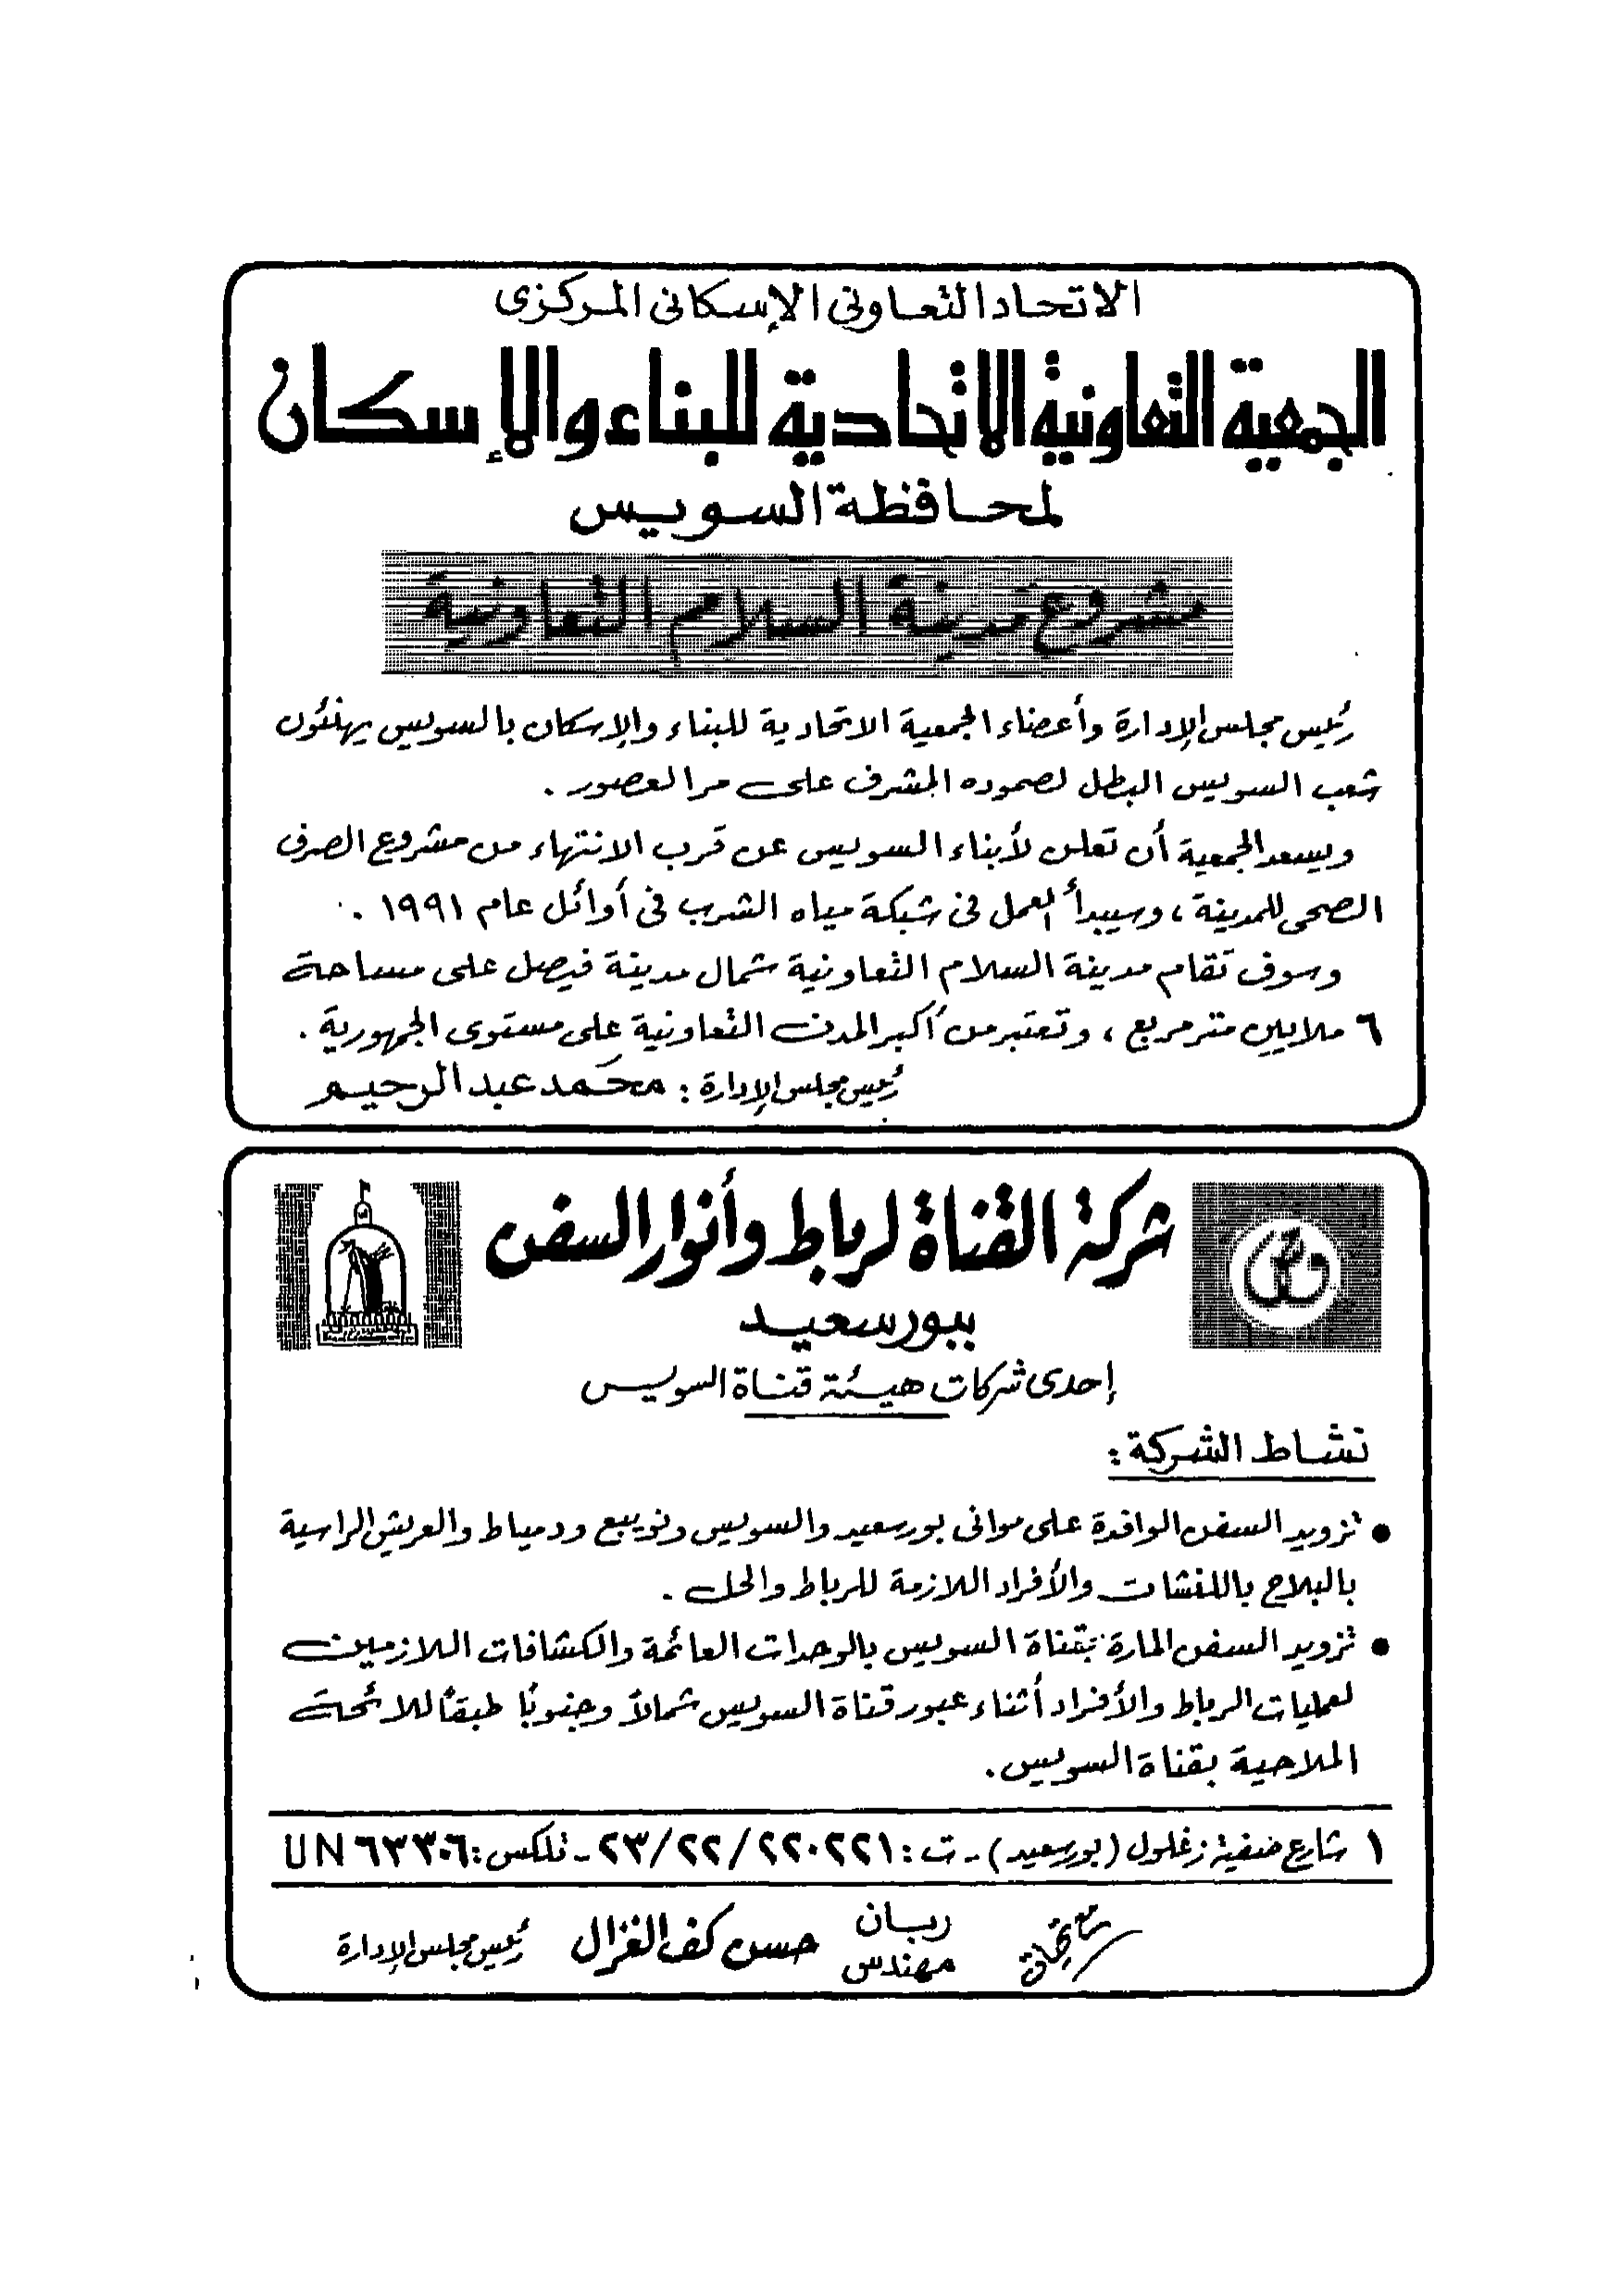 الاتحاد التعاونى الإسكانى المركزى
الجمعية التعاونية الاتحادية للبناء والإسكان
لمحافظة السويس
مشروع مدينة السلام التعاونية
رئيس مجلس الإدارة وأعضاء الجمعية الاتحادية للبناء والإسكان بالسويس يهنئون
شعب السويس البطل لصموده المشرف على مر العصور .
ويسعد الجمعية أن تعلن لأبناء السويس عن قرب الانتهاء من مشروع الصرف
الصحى للمدينة ، وسيبدأ العمل فى شبكة مياه الشرب فى أوائل عام ١٩٩١ .
وسوف تقام مدينة السلام التعاونية شمال مدينة فيصل على مساحة
٦ ملايين متر مربع ، وتعتبر من أكبر المدن التعاونية على مستوى الجمهورية .
رئيس مجلس الإدارة : محمد عبد الرحيم
شركة القناة لرباط وأنوار السفن
ببورسعيد
إحدى شركات هيئة قناة السويس
نشاط الشركة :
• تزويد السفن الوافدة على موانى بورسعيد والسويس ونويبع ودمياط والعريش الراسية
بالبلاح باللنشات والأفراد اللازمة للرباط والحل .
• تزويد السفن المارة بقناة السويس بالوحدات العائمة والكشافات اللازمين
لعمليات الرباط والأفراد أثناء عبور قناة السويس شمالاً وجنوبًا طبقًا للائحة
الملاحية بقناة السويس .
١ شارع صفية زغلول (بورسعيد) - ت : ٢٢٠٢٢١ /٢٢/ ٢٣ - تلكس : ٦٣٣٠٦ UN
مع تحيات
ربان
مهندس
حسن كف الغزال
رئيس مجلس الإدارة